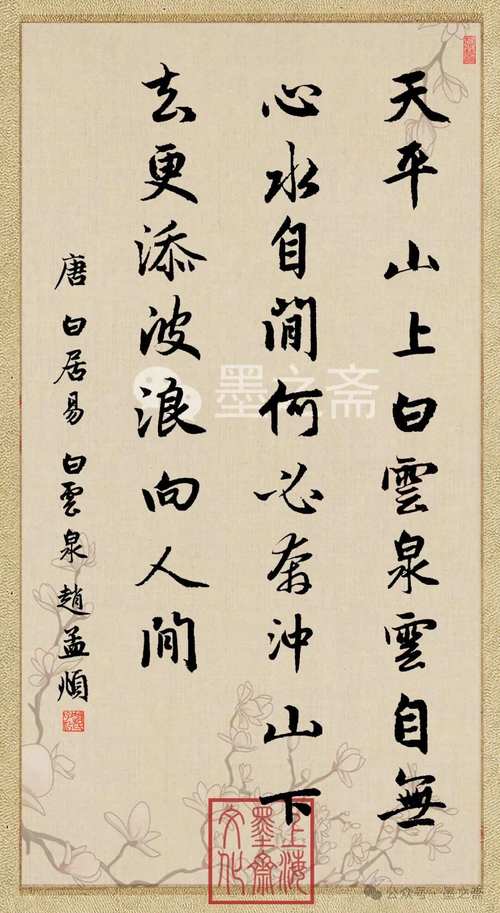 天平山上白雲泉雲自無
心水自閒何必奔沖山下
去更添波浪向人間
唐白居易白雲泉趙孟順
墨之斋
上海
墨齋
文化
公众号·墨之斋